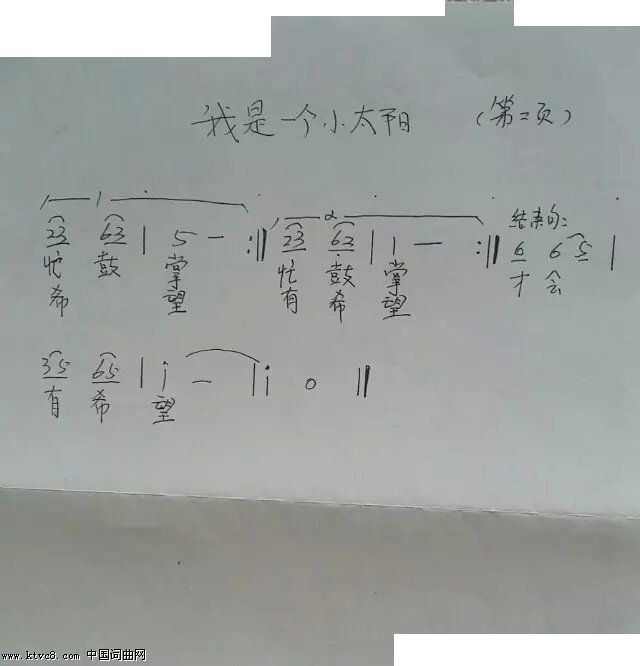 我是一个小太阳 (第二页)
1. 2.
23 63 | 5 — :‖ 23 63 | 1 — :‖ 结束句: 6 6 5 |
忙 鼓 掌 忙 鼓 掌 才 会
希 望 有 希 望
35 65 | i — | i 0 ‖
有 希 望
www.ktvc8.com 中国词曲网